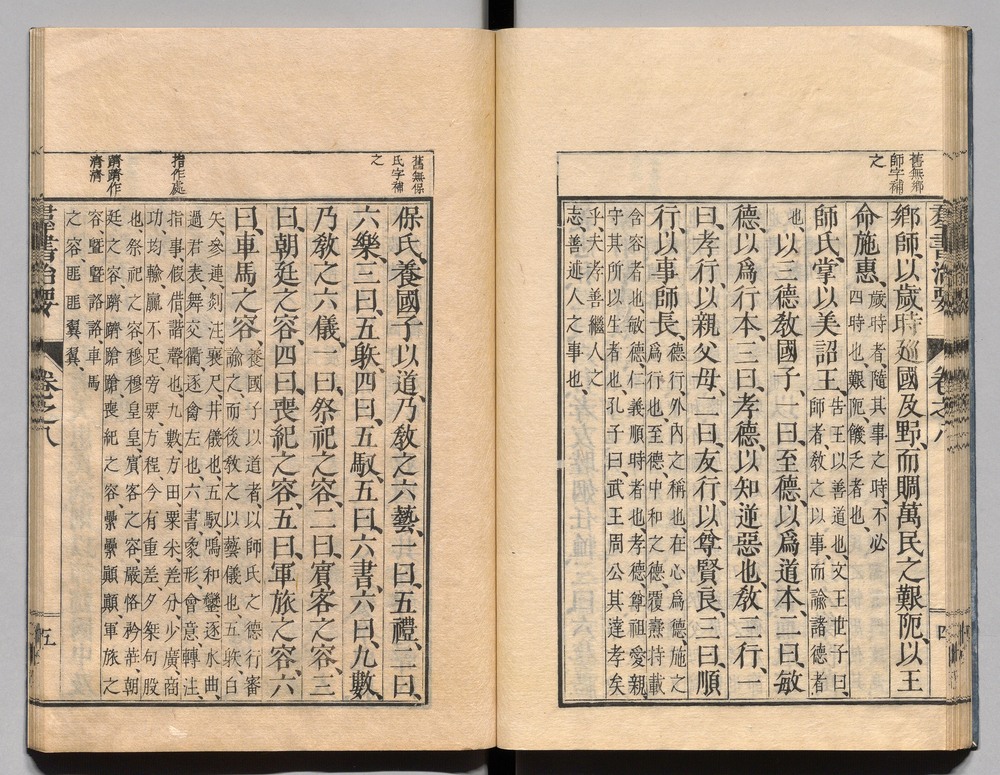 舊無鄉
師字補
之
羣書治要 卷之八 四
鄉師以歲時巡國及野而賙萬民之艱阨以王
命施惠 歲時者隨其事之時不必
四時也艱阨饑乏者也
師氏掌以美詔王 告王以善道也文王世子曰
師者教之以事而諭諸德者
也
以三德教國子一曰至德以爲道本二曰敏
德以爲行本三曰孝德以知逆惡也教三行一
曰孝行以親父母二曰友行以尊賢良三曰順
行以事師長 德行外內之稱也在心爲德施之
爲行也至德中和之德覆燾持載
含容者也敏德仁義順時者也孝德尊祖愛親
守其所以生者也孔子曰武王周公其達孝矣
乎夫孝善繼人之
志善述人之事也
舊無保
氏字補
之
指作處
躋躋作
濟濟
保氏養國子以道乃教之六藝一曰五禮二曰
六樂三曰五䠶四曰五馭五曰六書六曰九數
乃教之六儀一曰祭祀之容二曰賓客之容三
曰朝廷之容四曰喪紀之容五曰軍旅之容六
曰車馬之容 養國子以道者以師氏之德行審
諭之而後教之以藝儀也五䠶白
矢參連剡注襄尺井儀也五馭鳴和鑾逐水曲
過君表舞交衢逐禽左也六書象形會意轉注
指事假借諧聲也九數方田粟米差分少廣商
功均輸贏不足旁要方程今有重差夕桀句股
也祭祀之容穆穆皇皇賓客之容嚴恪矜莊朝
廷之容躋躋蹌蹌喪紀之容纍纍顚顚軍旅之
容曁曁詻詻車馬
之容匪匪翼翼
羣書治要 卷之八 五